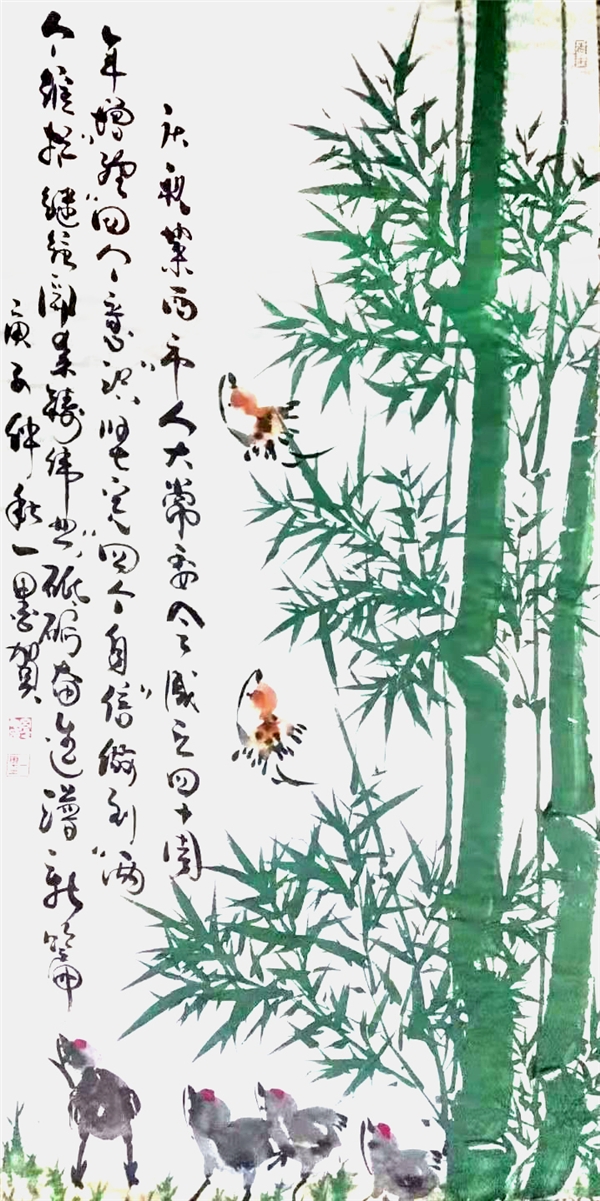 庆祝莱西市人大常委会成立四十周
年增强"四个意识"坚定"四个自信"做到"两
个维护"继往开来铸伟业砥砺奋进谱新篇
庚子仲秋一墨贺